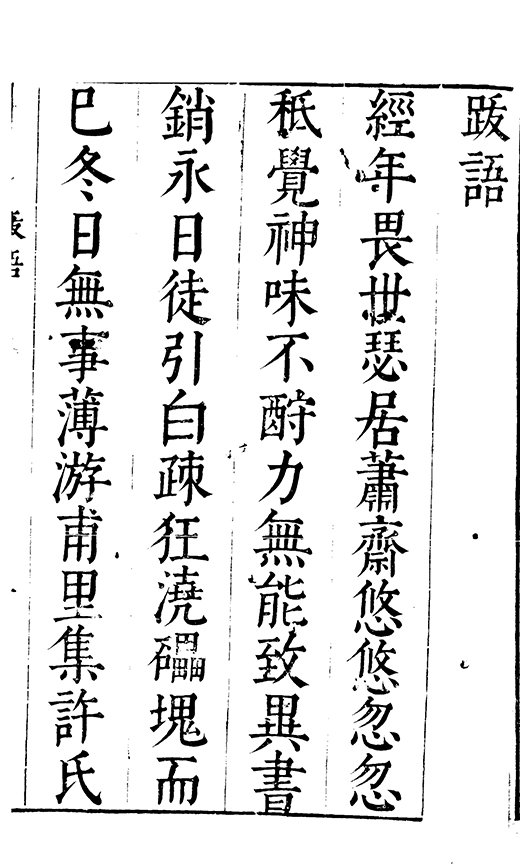 跋語
經年畏世瑟居蕭齋悠悠忽忽
秪覺神味不酧力無能致異書
銷永日徒引白疎狂澆礧塊而
巳冬日無事薄游甫里集許氏
跋語